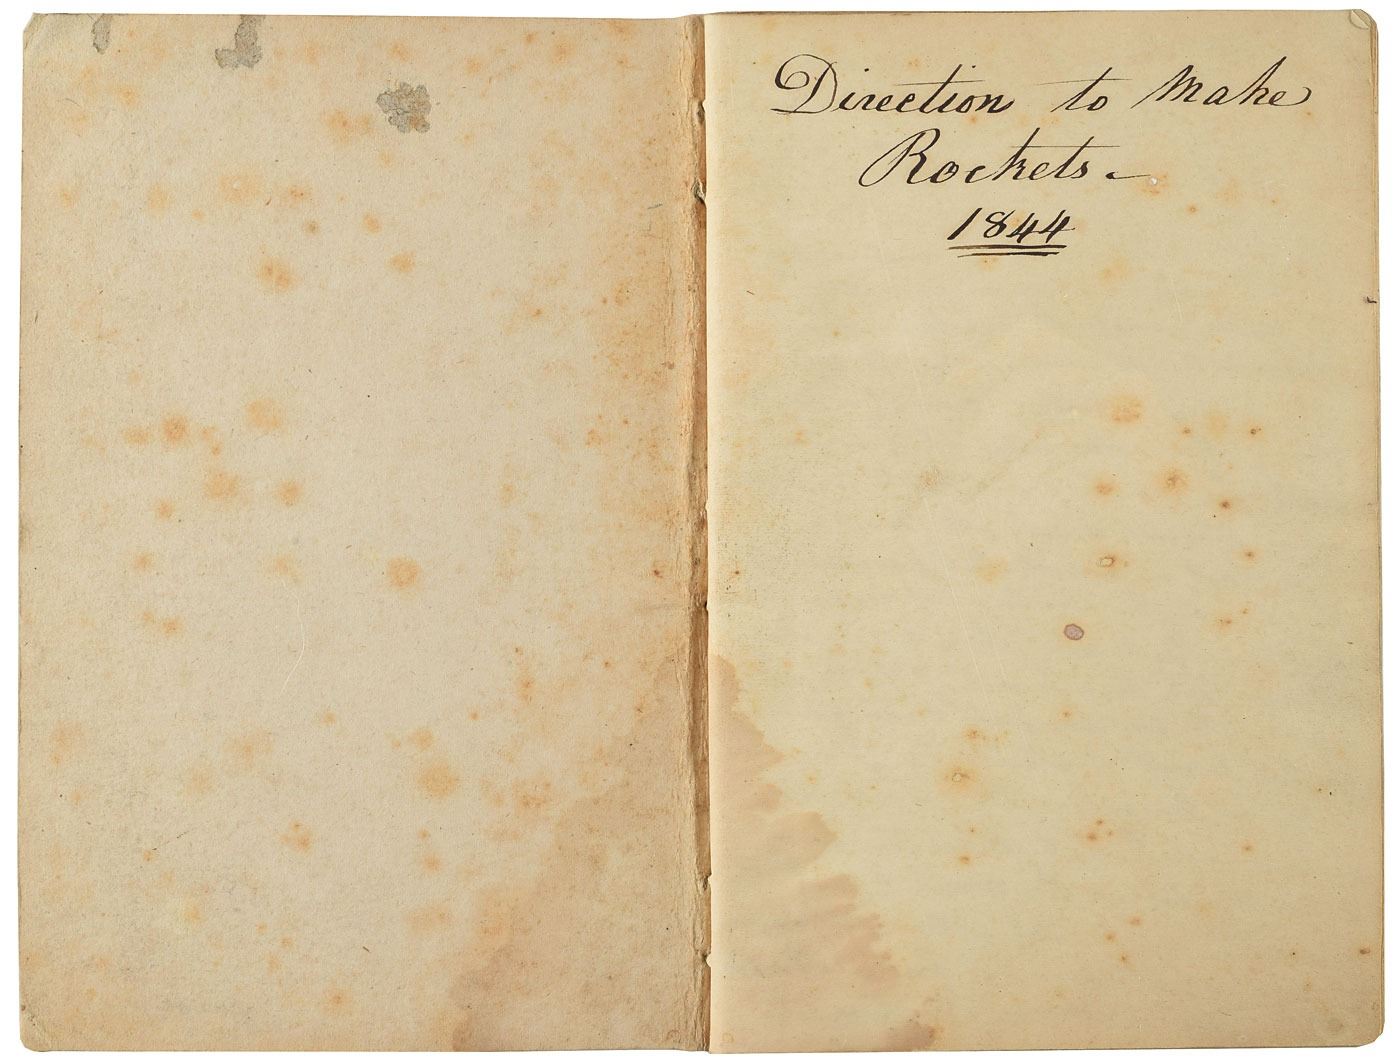 Direction to Make
Rockets.
1844